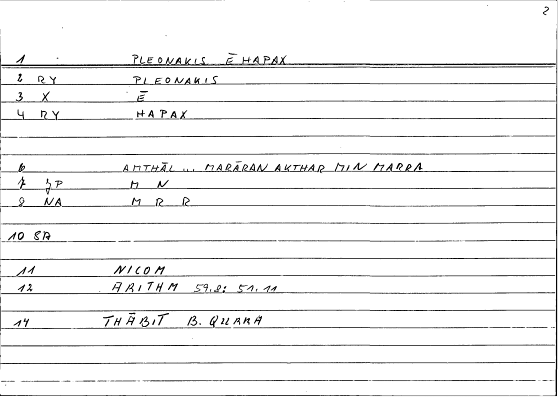 2
1 PLEONAKIS Ē HAPAX
2 RY PLEONAKIS
3 X Ē
4 RY HAPAX
6 AMTHĀL ... MARĀRAN AKTHAR MIN MARRA
7 JP M N
8 NA M R R
10 SA
11 NICOM
12 ARITHM 59.8: 51.11
14 THĀBIT B. QURRA